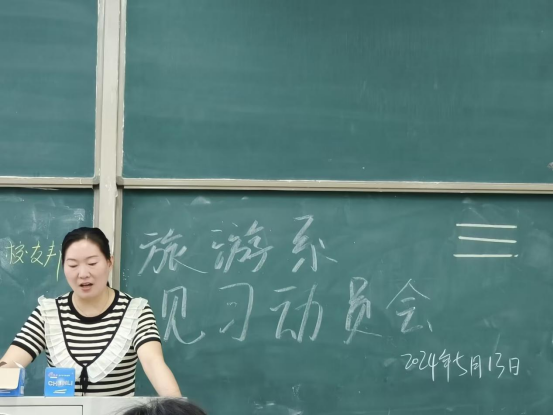 旅游系
见习动员会
2024年5月13日
校友